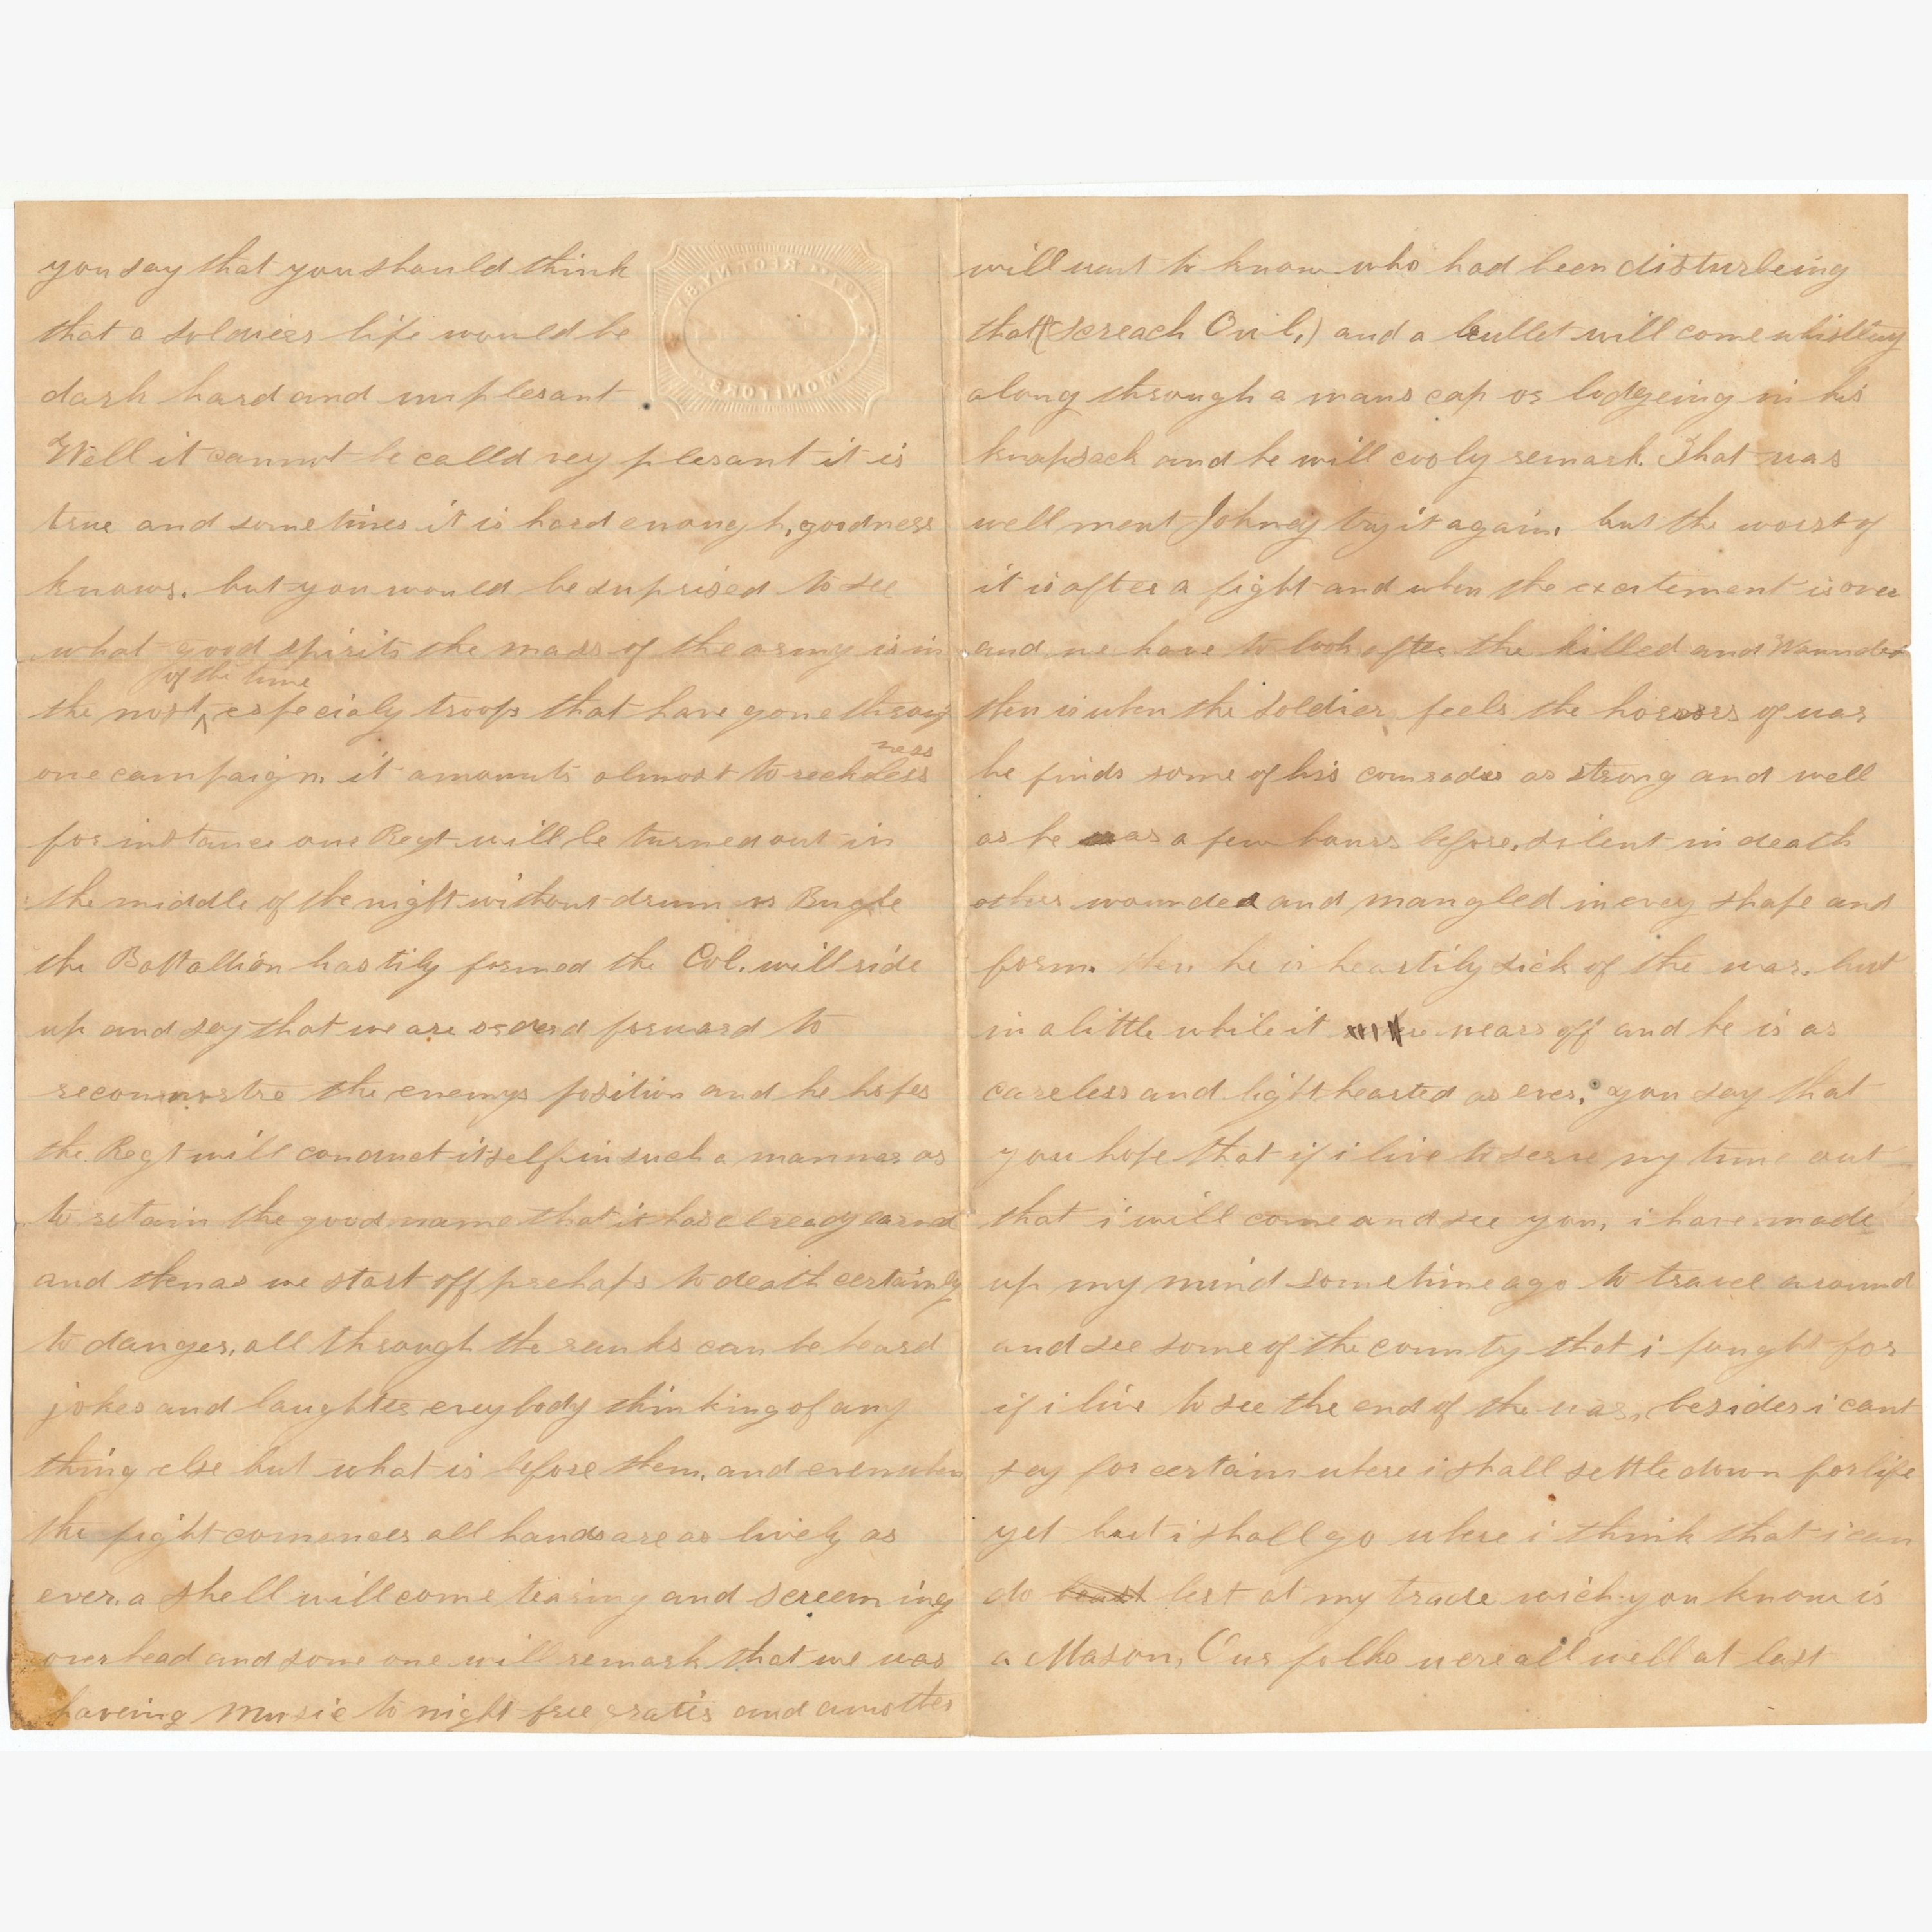 you say that you should think
that a soldiers life would be
dark hard and unplesant
Well it cannot be calld vey plesant it is
true and sometimes it is hard enough, goodness
knows. but you would be suprised to see
what good spirits the mass of the army is in
of the time
the most ^ especialy troops that have gone throug
ness
one campaign. it amounts almost to reckless
for instance our Regt will be turned out in
the middle of the night without drum or Bugle
the Battallion hastily formed the Col. will ride
up and say that we are orderd forward to
the enemys position and he hopes
the Regt will conduct itself in such a manner as
to retain the good name that it has already earnd
and then as we start off prehaps to death certainly
to danger, all through the ranks can be heard
jokes and laughter everybody thinking of any
thing else but what is before them, and even when
the fight comences all hands are as lively as
ever. a shell will come tearing and screeming
over head and some one will remark that we was
haveing Music to night free gratis and another
MONITORS
will want to know who had been disturbeing
that (Screach Owl,) and a bullet will come whistleing
along through a mans cap or lodgeing in his
knapsack and he will cooly remark. That was
well ment Johney try it again. but the worst of
it is after a fight and when the excitement is over
and we have to look after the killed and Wounded
then is when the soldier feels the horrors of war
he finds some of his comrades as strong and well
as he was a few hours before, silent in death
other wounded and mangled in every shape and
form. then he is heartily sick of the war. but
in a little while it wears off and he is as
careless and light hearted as ever, you say that
you hope that if i live to serve my time out
that i will come and see you, i have made
up my mind sometime ago to travel around
and see some of the country that i fought for
if i live to see the end of the war, besides i cant
say for certain where i shall settle down for life
yet but i shall go where i think that i can
do best at my trade wich you know is
a Mason, Our folks were all well at last